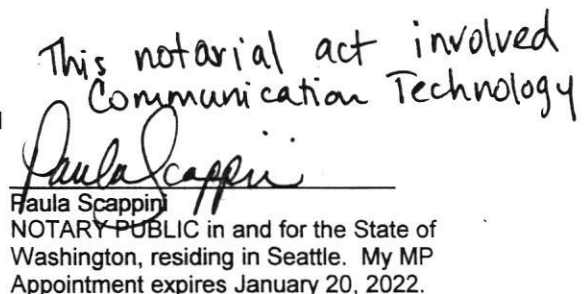 This notarial act involved
Communication Technology
Paula Scappini
Paula Scappini
NOTARY PUBLIC in and for the State of
Washington, residing in Seattle. My MP
Appointment expires January 20, 2022.